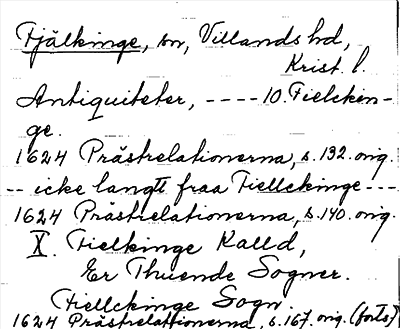 Fjälkinge, sn, Villands hd,
Krist. l.
Antiquiteter, ---- 10. Fielckin-
ge.
1624 Prästrelationerna, s. 132. orig.
-- icke langtt fraa Fiellckinge ---
1624 Prästrelationerna, s. 140. orig.
X. Fielkinge Kalld,
Er Thuende Sogner.
Fiellckinge Sogn.
1624 Prästrelationerna, s. 167. orig. (forts)